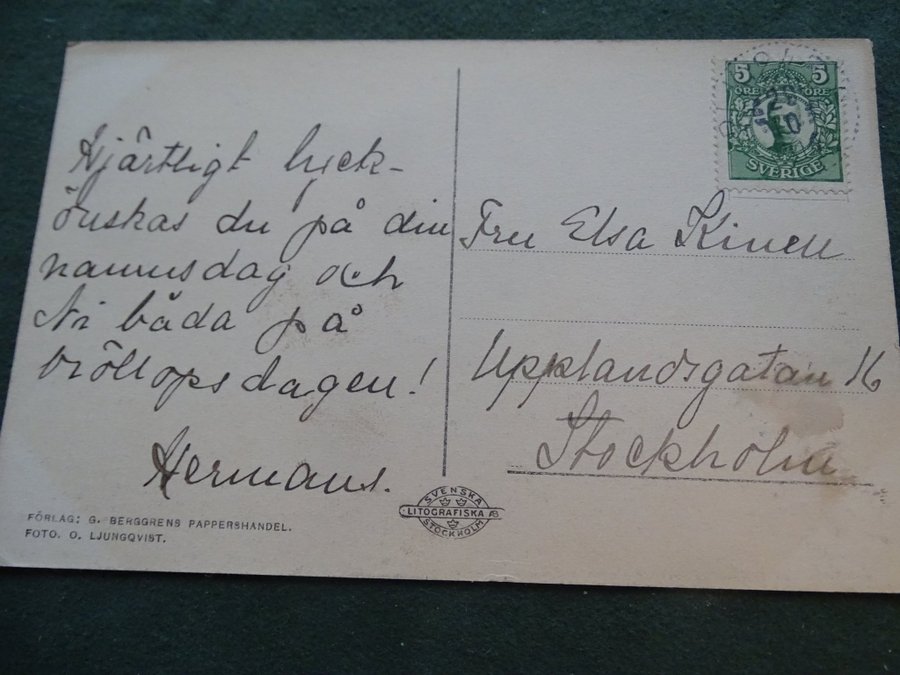 Hjärtligt lyck-
önskas du på din
namnsdag och
Ni båda på
bröllopsdagen!
Hermans.
FÖRLAG: G. BERGGRENS PAPPERSHANDEL.
FOTO. O. LJUNGQVIST.
SVENSKA
LITOGRAFISKA AB
STOCKHOLM
5 5
ÖRE ÖRE
SVERIGE
Fru Elsa Kinell
Upplandsgatan 16
Stockholm